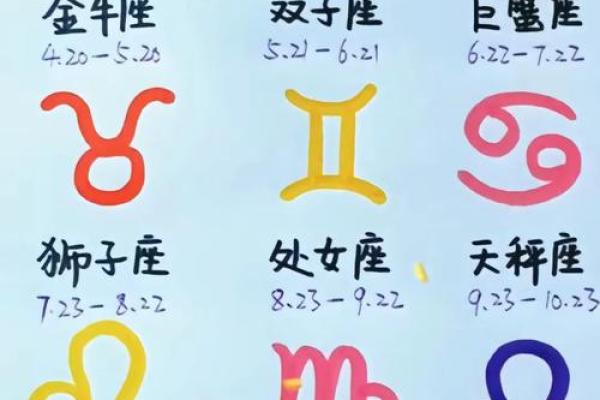 金牛座 双子座 巨蟹座
4.20-5.20 5.21-6.21 6.22-7.22
狮子座 处女座 天秤座
7.23-8.22 8.23-9.22 9.23-10.23